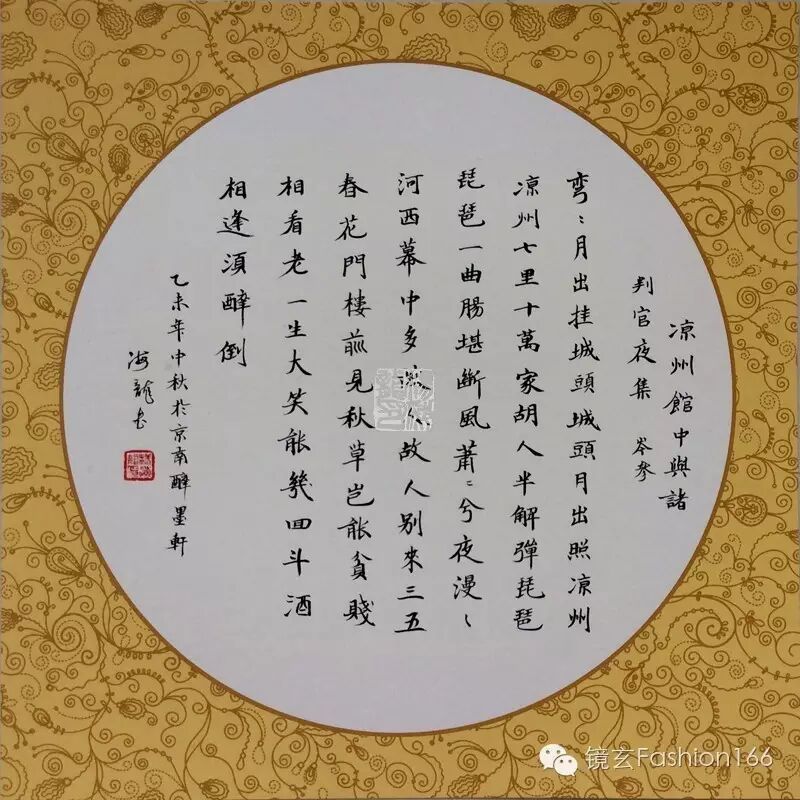 凉州館中與諸
判官夜集 岑参
弯〻月出挂城頭城頭月出照凉州
凉州七里十萬家胡人半解彈琵琶
琵琶一曲腸堪斷風蕭〻兮夜漫〻
河西幕中多故人故人别來三五
春花門樓前見秋草豈能貧賤
相看老一生大笑能幾回斗酒
相逢須醉倒
乙未年中秋於京南醉墨軒
海龍書
镜玄Fashion166